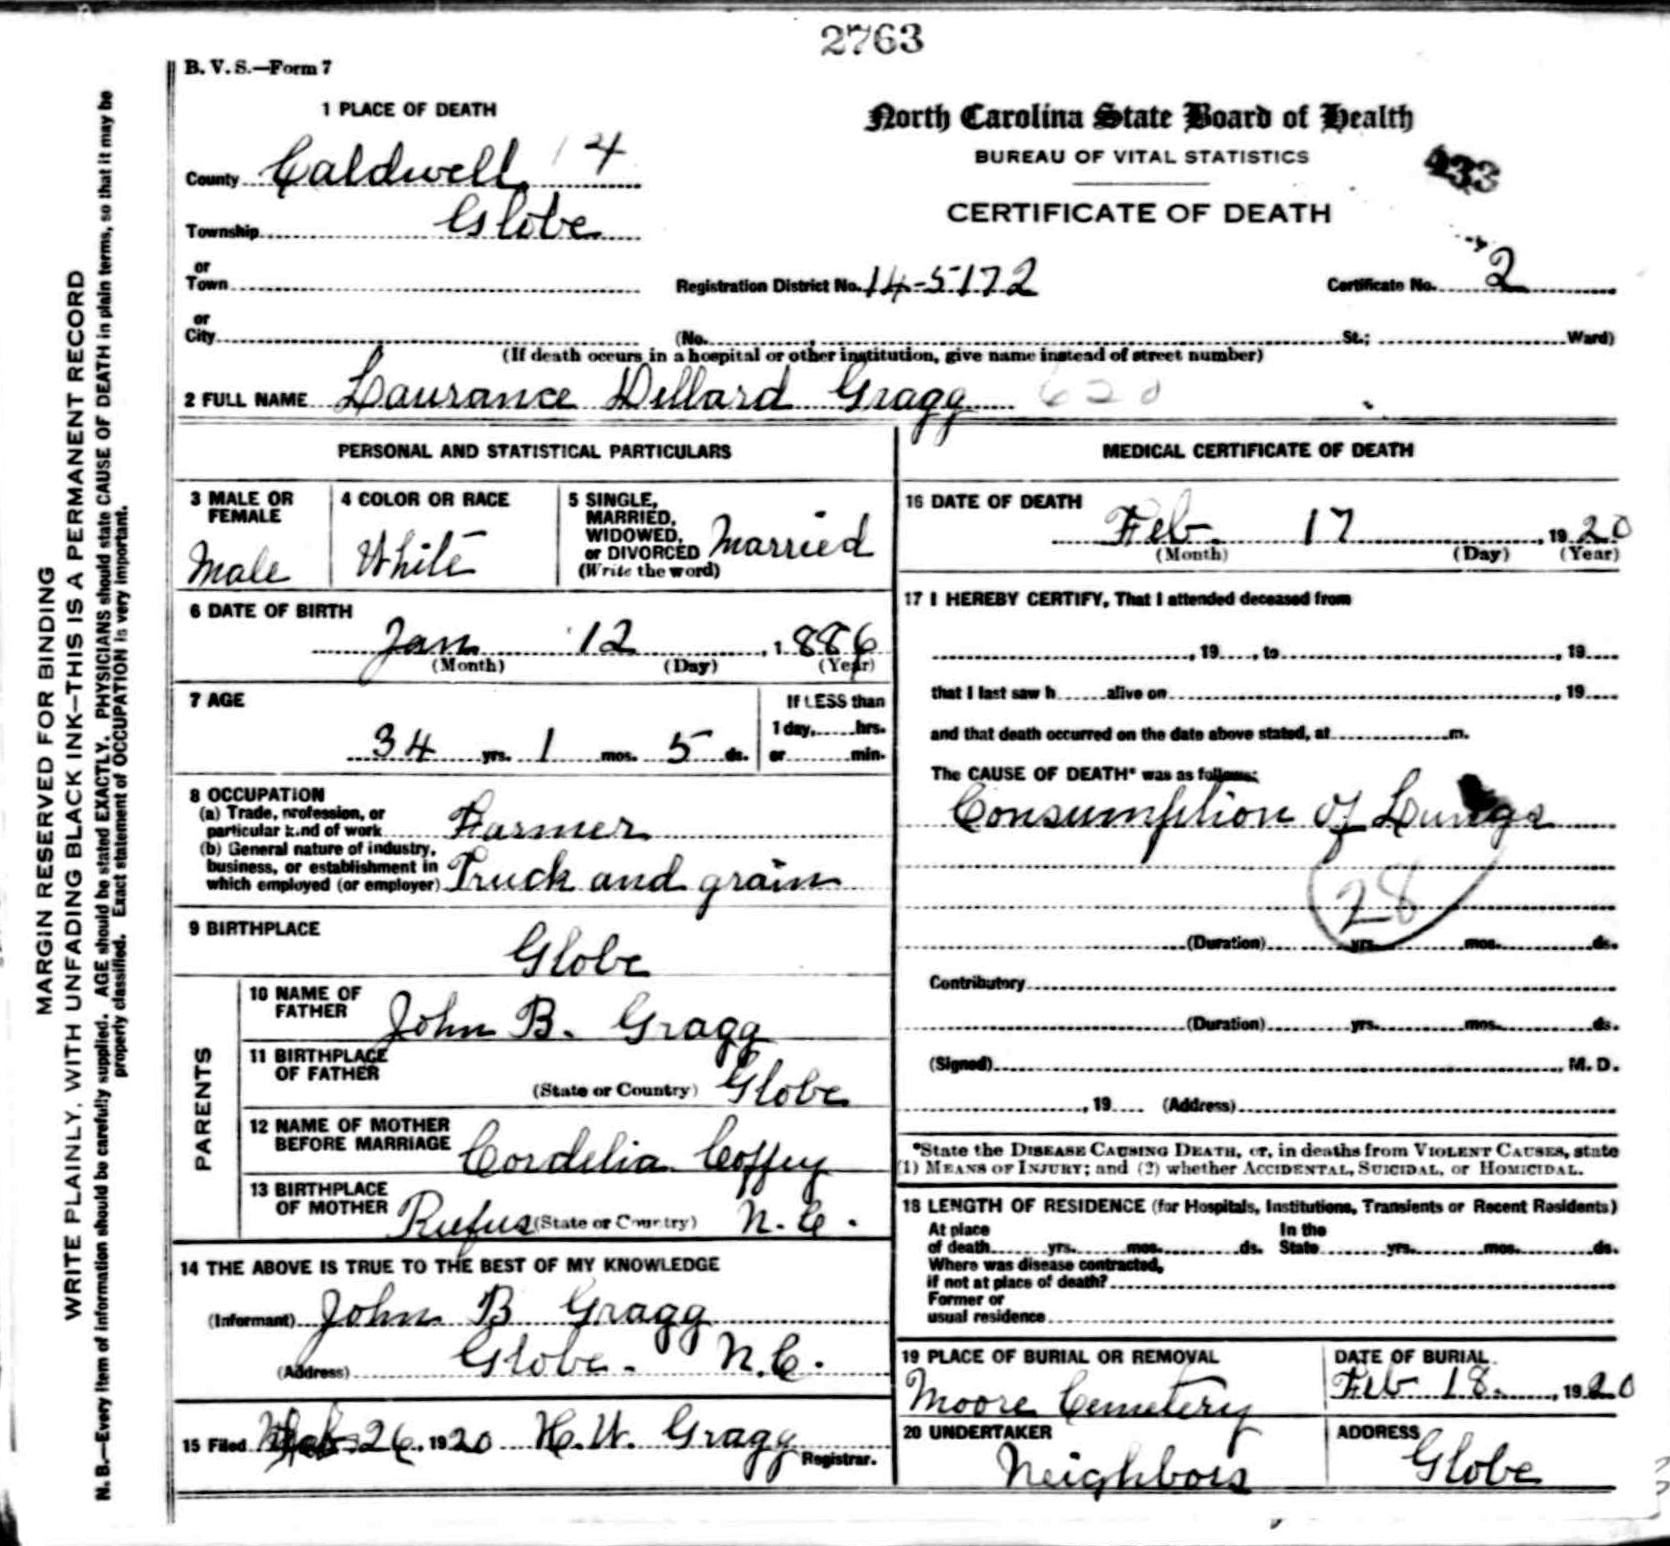 2763
B. V. S.—Form 7
1 PLACE OF DEATH
North Carolina State Board of Health
BUREAU OF VITAL STATISTICS
CERTIFICATE OF DEATH
433
County Caldwell 14
Township Globe
or
Town
Registration District No. 14-5172
Certificate No. 2
or
City (No. St.; Ward)
(If death occurs in a hospital or other institution, give name instead of street number)
2 FULL NAME Laurance Dillard Gragg 620
PERSONAL AND STATISTICAL PARTICULARS
3 MALE OR FEMALE
Male
4 COLOR OR RACE
White
5 SINGLE,
MARRIED,
WIDOWED,
or DIVORCED Married
(Write the word)
6 DATE OF BIRTH
Jan 12, 1886
(Month) (Day) (Year)
7 AGE
34 yrs. 1 mos. 5 ds.
If LESS than
1 day, hrs.
or min.
8 OCCUPATION
(a) Trade, profession, or
particular kind of work Farmer
(b) General nature of industry,
business, or establishment in
which employed (or employer) Truck and grain
9 BIRTHPLACE
Globe
PARENTS
10 NAME OF
FATHER John B. Gragg
11 BIRTHPLACE
OF FATHER
(State or Country) Globe
12 NAME OF MOTHER
BEFORE MARRIAGE Cordelia Coffey
13 BIRTHPLACE
OF MOTHER Rufus (State or Country) N. C.
14 THE ABOVE IS TRUE TO THE BEST OF MY KNOWLEDGE
(Informant) John B Gragg
(Address) Globe. N.C.
15 Filed 26, 1920 H. W. Gragg
Registrar.
MEDICAL CERTIFICATE OF DEATH
16 DATE OF DEATH
Feb. 17, 1920
(Month) (Day) (Year)
17 I HEREBY CERTIFY, That I attended deceased from
, 19 , to , 19
that I last saw h alive on , 19
and that death occurred on the date above stated, at m.
The CAUSE OF DEATH* was as follows:
Consumption of Lungs
28
(Duration) yrs. mos. ds.
Contributory
(Duration) yrs. mos. ds.
(Signed) , M. D.
, 19 (Address)
*State the DISEASE CAUSING DEATH, or, in deaths from VIOLENT CAUSES, state
(1) MEANS OF INJURY; and (2) whether ACCIDENTAL, SUICIDAL, or HOMICIDAL.
18 LENGTH OF RESIDENCE (for Hospitals, Institutions, Transients or Recent Residents)
At place In the
of death yrs. mos. ds. State yrs. mos. ds.
Where was disease contracted,
if not at place of death?
Former or
usual residence
19 PLACE OF BURIAL OR REMOVAL
Moore Cemetery
DATE OF BURIAL
Feb 18., 1920
20 UNDERTAKER
Neighbors
ADDRESS
Globe
MARGIN RESERVED FOR BINDING
WRITE PLAINLY, WITH UNFADING BLACK INK—THIS IS A PERMANENT RECORD
N. B.—Every item of information should be carefully supplied. AGE should be stated EXACTLY. PHYSICIANS should state CAUSE OF DEATH in plain terms, so that it may be
properly classified. Exact statement of OCCUPATION is very important.